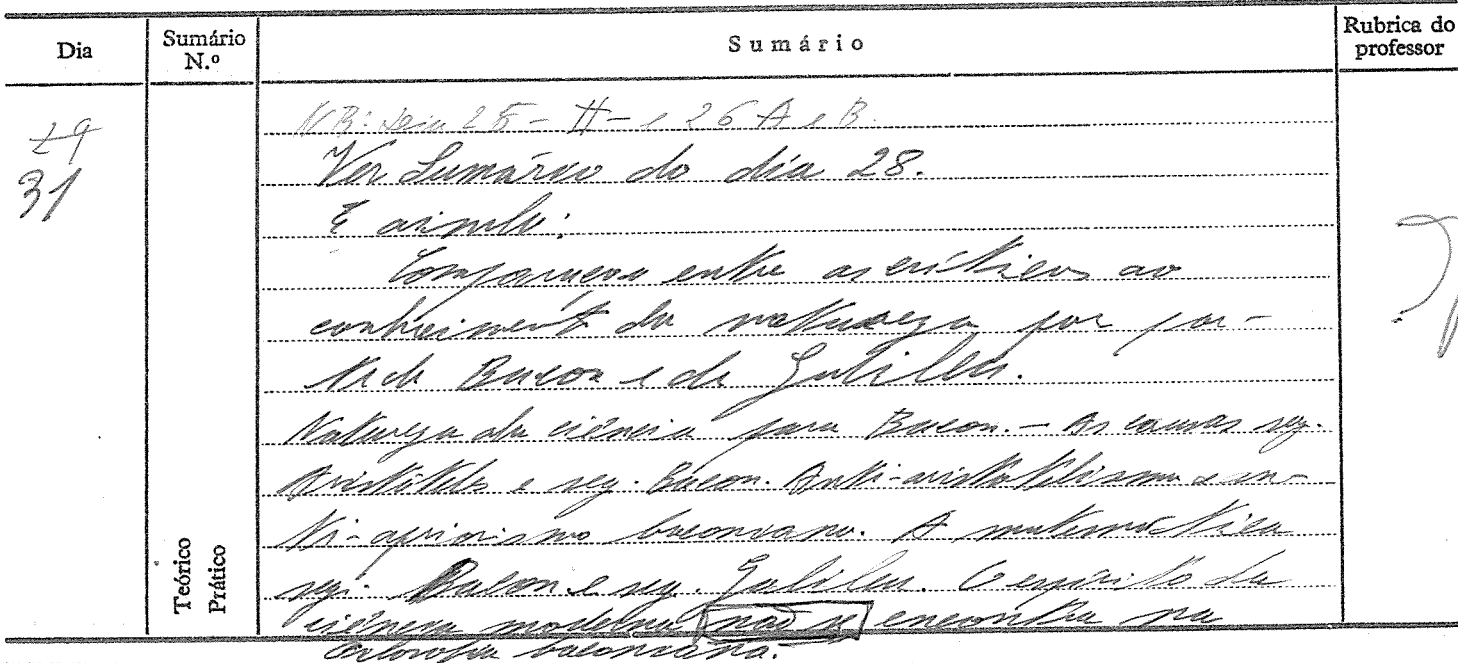 Dia
Sumário N.º
Sumário
Rubrica do professor
29
31
NB: 25 - H - e 26 A e B.
Ver Sumário do dia 28.
E ainda:
Comparação entre as críticas ao
conhecimento da natureza por par-
te de Bacon e de Galileu.
Natureza da ciência para Bacon. - As causas seg.
Aristóteles e seg. Bacon. Anti-aristotelismo e an-
ti-apriorismo baconiano. A matemática
seg. Bacon e seg. Galileu. O espírito da
ciência moderna não se encontra na
filosofia baconiana.
Teórico
Prático